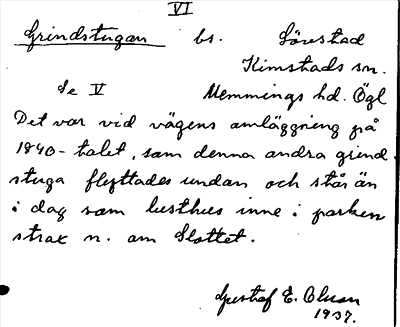 VI
Grindstugan bs. Lörestad
Kimstads sn.
Se V Memmings hd. Ögl
Det var vid vägens omläggning på
1840-talet, som denna andra grind-
stuga flyttades undan och står än
i dag som lusthus inne i parken
strax n. om Slottet.
Gustaf E. Olsson
1937.